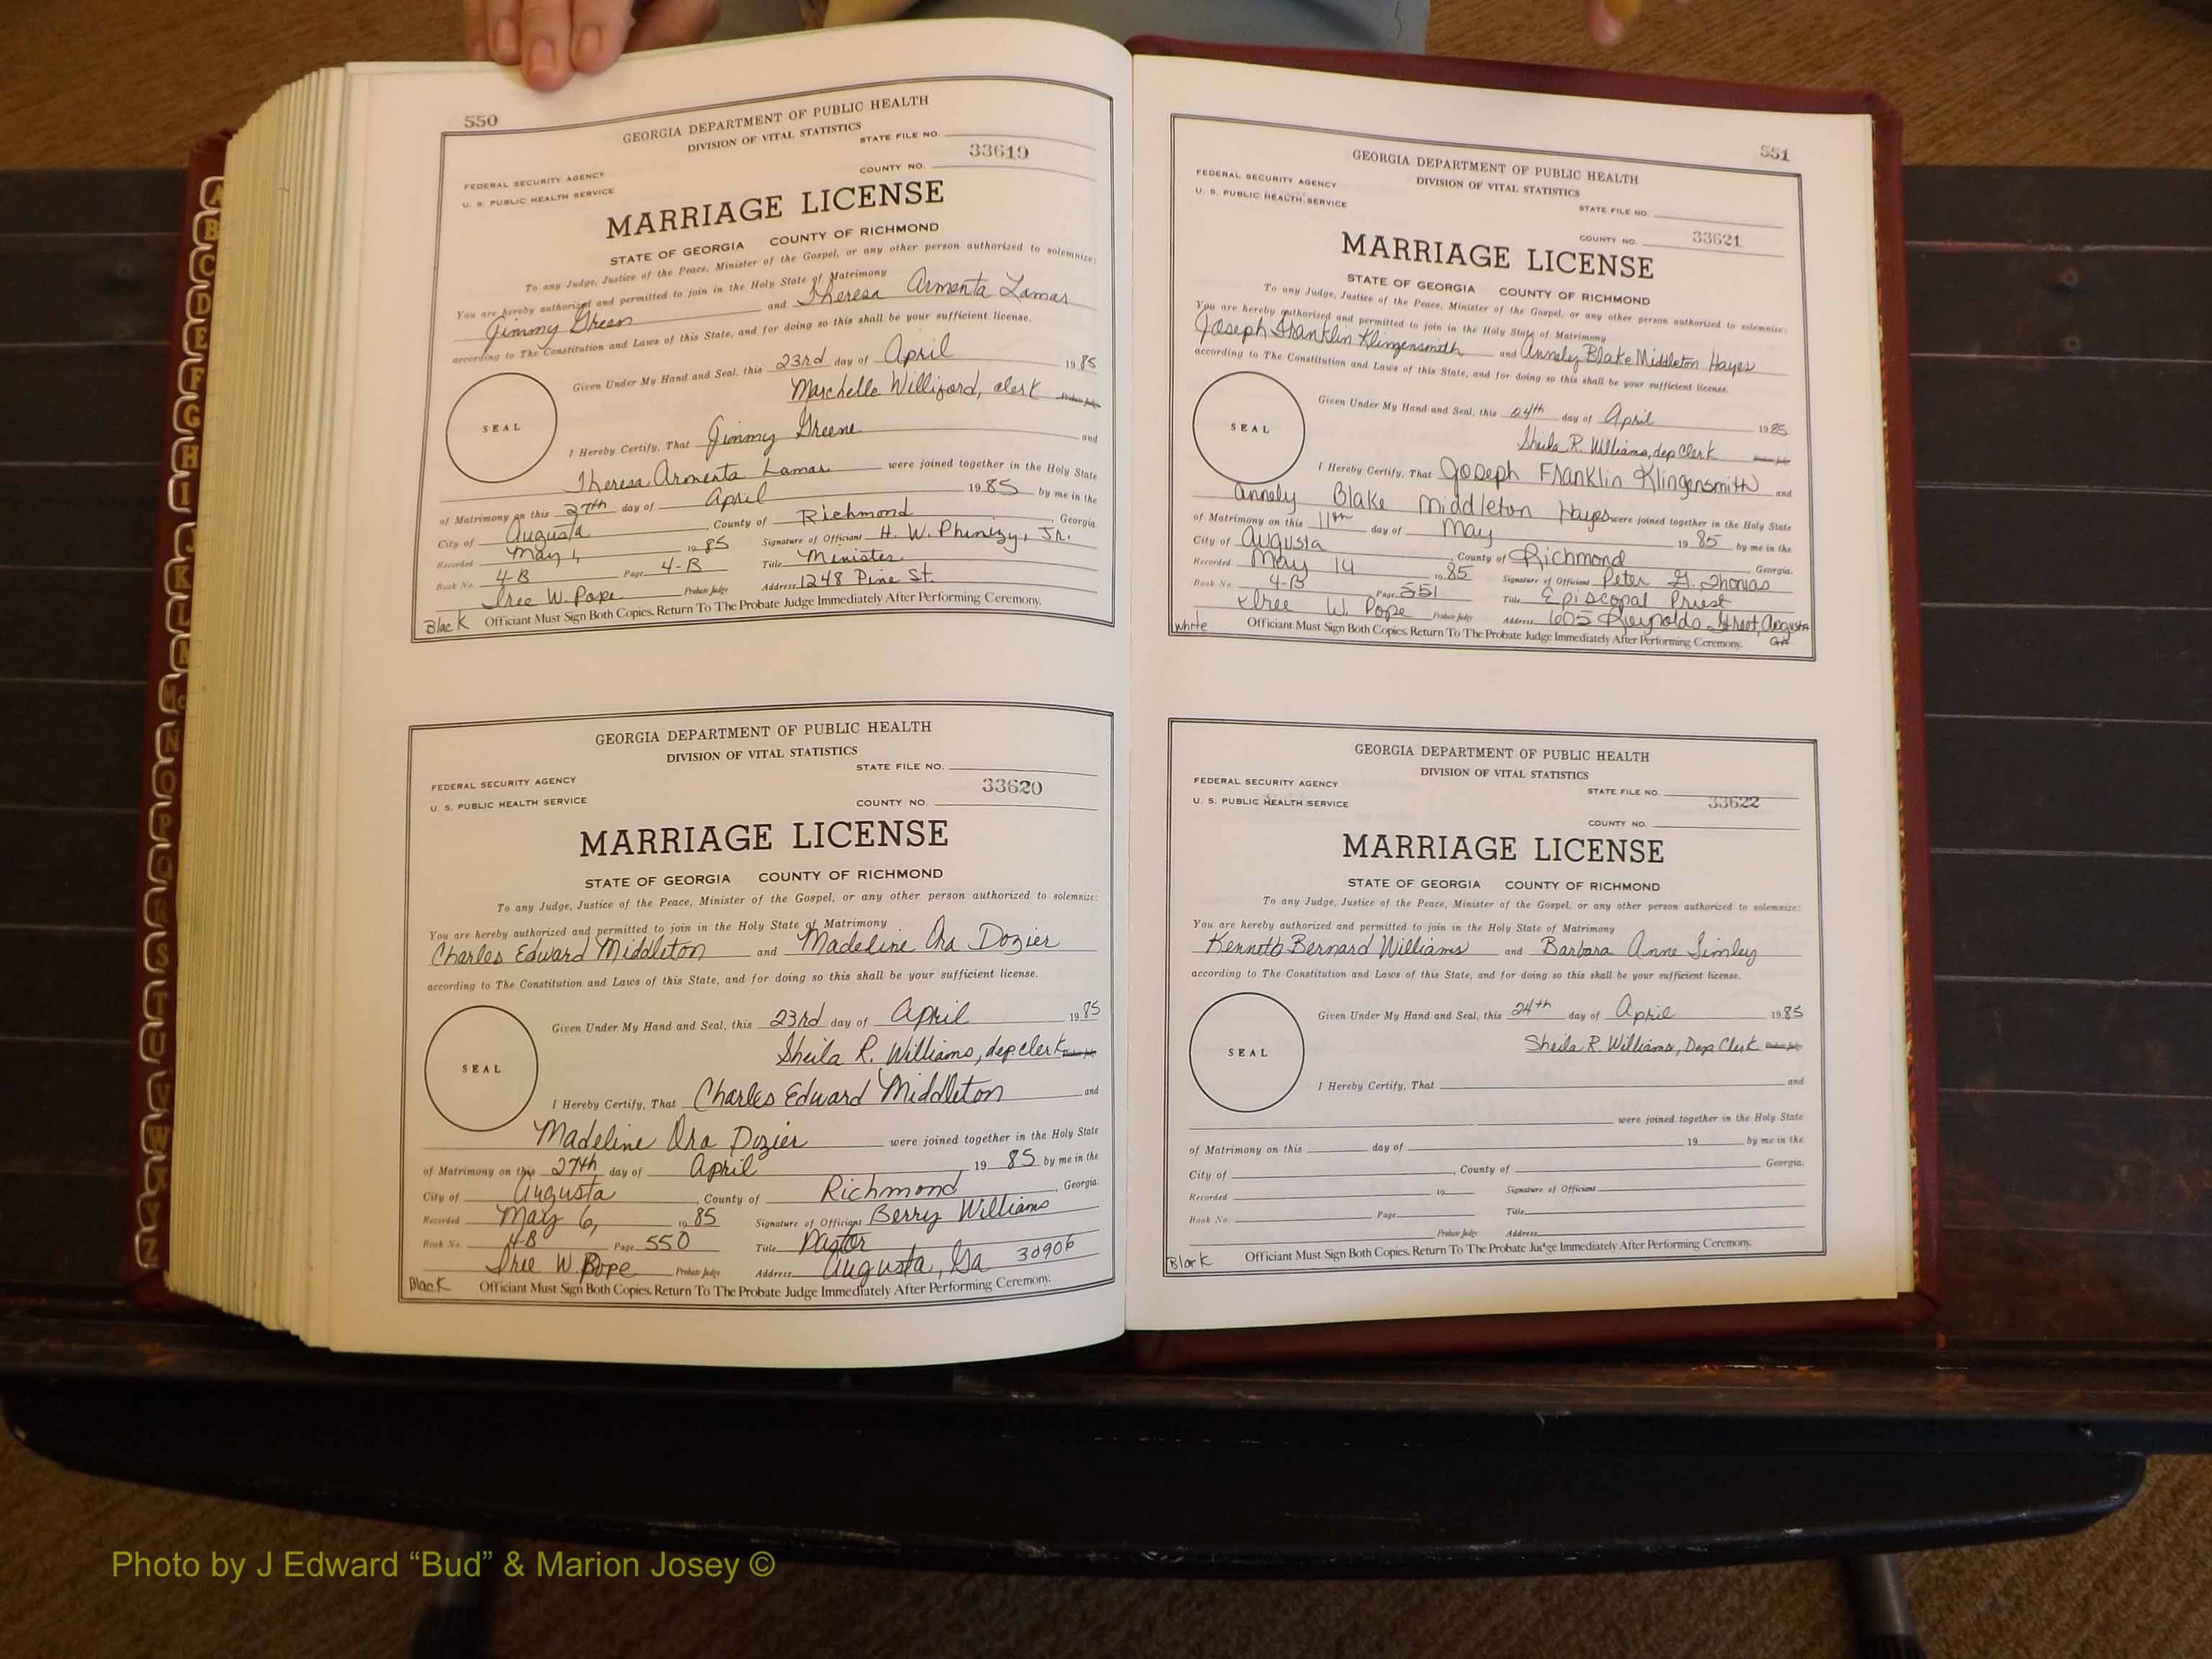 550
GEORGIA DEPARTMENT OF PUBLIC HEALTH
DIVISION OF VITAL STATISTICS
STATE FILE NO.
33619
COUNTY NO.
FEDERAL SECURITY AGENCY
U. S. PUBLIC HEALTH SERVICE
MARRIAGE LICENSE
STATE OF GEORGIA COUNTY OF RICHMOND
To any Judge, Justice of the Peace, Minister of the Gospel, or any other person authorized to solemnize:
You are hereby authorized and permitted to join in the Holy State of Matrimony
Jimmy Green and Theresa Armenta Lamar
according to The Constitution and Laws of this State, and for doing so this shall be your sufficient license.
Given Under My Hand and Seal, this 23rd day of April 1985
Marchelle Williford, clerk Probate Judge
SEAL
I Hereby Certify, That Jimmy Greene and
Theresa Armenta Lamar were joined together in the Holy State
of Matrimony on this 27th day of April 1985 by me in the
City of Augusta, County of Richmond, Georgia.
Recorded May 1, 1985 Signature of Officiant H. W. Phinizy, Jr.
Book No. 4-B Page 4-B Title Minister
Iree W. Pope Probate Judge Address 1248 Pine St.
Black Officiant Must Sign Both Copies. Return To The Probate Judge Immediately After Performing Ceremony.
GEORGIA DEPARTMENT OF PUBLIC HEALTH
DIVISION OF VITAL STATISTICS
STATE FILE NO.
FEDERAL SECURITY AGENCY
33620
U. S. PUBLIC HEALTH SERVICE COUNTY NO.
MARRIAGE LICENSE
STATE OF GEORGIA COUNTY OF RICHMOND
To any Judge, Justice of the Peace, Minister of the Gospel, or any other person authorized to solemnize:
You are hereby authorized and permitted to join in the Holy State of Matrimony
Charles Edward Middleton and Madeline Ora Dozier
according to The Constitution and Laws of this State, and for doing so this shall be your sufficient license.
Given Under My Hand and Seal, this 23rd day of April 1985
Sheila R. Williams, dep clerk Probate Judge
SEAL
I Hereby Certify, That Charles Edward Middleton and
Madeline Ora Dozier were joined together in the Holy State
of Matrimony on this 27th day of April 1985 by me in the
City of Augusta, County of Richmond, Georgia.
Recorded May 6, 1985 Signature of Officiant Berry Williams
Book No. 4-B Page 550 Title Pastor
Iree W. Pope Probate Judge Address Augusta, Ga 30906
Black Officiant Must Sign Both Copies. Return To The Probate Judge Immediately After Performing Ceremony.
551
GEORGIA DEPARTMENT OF PUBLIC HEALTH
DIVISION OF VITAL STATISTICS
FEDERAL SECURITY AGENCY
U. S. PUBLIC HEALTH SERVICE
STATE FILE NO.
COUNTY NO. 33621
MARRIAGE LICENSE
STATE OF GEORGIA COUNTY OF RICHMOND
To any Judge, Justice of the Peace, Minister of the Gospel, or any other person authorized to solemnize:
You are hereby authorized and permitted to join in the Holy State of Matrimony
Joseph Franklin Klingensmith and Annely Blake Middleton Hayes
according to The Constitution and Laws of this State, and for doing so this shall be your sufficient license.
Given Under My Hand and Seal, this 24th day of April 1985
Sheila R. Williams, dep Clerk Probate Judge
SEAL
I Hereby Certify, That Joseph Franklin Klingensmith and
Annely Blake Middleton Hayes were joined together in the Holy State
of Matrimony on this 11th day of May 1985 by me in the
City of Augusta, County of Richmond, Georgia.
Recorded May 14 1985 Signature of Officiant Peter G. Thomas
Book No. 4-B Page 551 Title Episcopal Priest
Iree W. Pope Probate Judge Address 605 Reynolds Street, Augusta
Ga
White Officiant Must Sign Both Copies. Return To The Probate Judge Immediately After Performing Ceremony.
GEORGIA DEPARTMENT OF PUBLIC HEALTH
DIVISION OF VITAL STATISTICS
FEDERAL SECURITY AGENCY
STATE FILE NO.
U. S. PUBLIC HEALTH SERVICE 33622
COUNTY NO.
MARRIAGE LICENSE
STATE OF GEORGIA COUNTY OF RICHMOND
To any Judge, Justice of the Peace, Minister of the Gospel, or any other person authorized to solemnize:
You are hereby authorized and permitted to join in the Holy State of Matrimony
Kenneth Bernard Williams and Barbara Anne Simley
according to The Constitution and Laws of this State, and for doing so this shall be your sufficient license.
Given Under My Hand and Seal, this 24th day of April 1985
Sheila R. Williams, Dep Clerk Probate Judge
SEAL
I Hereby Certify, That and
were joined together in the Holy State
of Matrimony on this day of 19 by me in the
City of , County of Georgia.
Recorded 19 Signature of Officiant
Book No. Page Title
Probate Judge Address
Black Officiant Must Sign Both Copies. Return To The Probate Judge Immediately After Performing Ceremony.
A
B
C
D
E
F
G
H
I
J
K
L
M
Mc
N
O
P
Q
R
S
T
U
V
W
Y
Z
Photo by J Edward “Bud” & Marion Josey ©